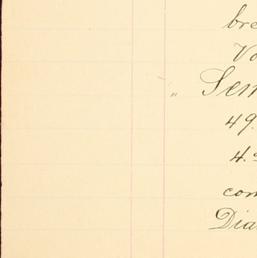 bre
Vo
" Sem
49.
4.
com
Dia